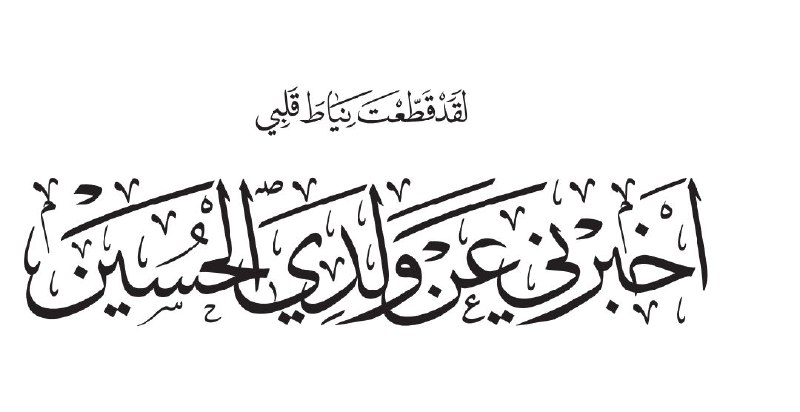 لقَدْ قَطَّعْتَ نِيَاطَ قَلبِي
اخْبرْني عَن وَلَدِي الحُسَينْ